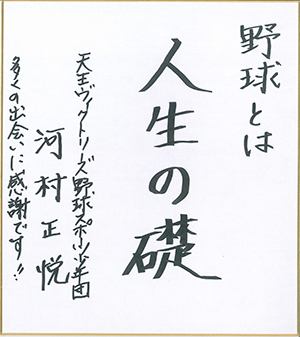 野球とは
人生の礎
天王ヴィクトリーズ野球スポーツ少年団
河村正悦
多くの出会いに感謝です!!